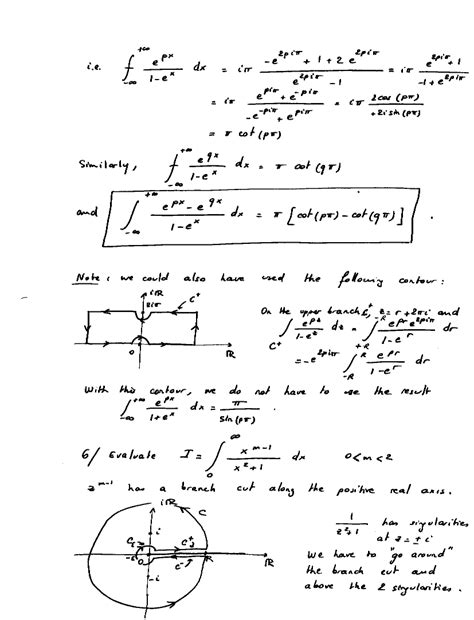 i.e. ⨍_{-∞}^{+∞} e^{px}/(1-e^x) dx = iπ (-e^{2piπ} + 1 + 2e^{2piπ})/(e^{2piπ} - 1) = iπ (e^{2piπ} + 1)/(-1 + e^{2piπ})
= iπ (e^{piπ} + e^{-piπ})/(-e^{-piπ} + e^{piπ}) = iπ 2cos(pπ)/(+2i sin(pπ))
= π cot(pπ)
Similarly, ⨍_{-∞}^{+∞} e^{qx}/(1-e^x) dx = π cot(qπ)
and ∫_{-∞}^{+∞} (e^{px} - e^{qx})/(1-e^x) dx = π [cot(pπ) - cot(qπ)].
Note: we could also have used the following contour:
iR
2πi
C⁺
0
R
On the upper branch C⁺, z = r + 2πi and
∫_{C⁺} e^{pz}/(1-e^z) dz = ∫_{+R}^{-R} e^{pr} e^{2piπ}/(1-e^r) dr
= -e^{2piπ} ∫_{-R}^{R} e^{pr}/(1-e^r) dr
With this contour, we do not have to use the result
∫_{-∞}^{+∞} e^{px}/(1+e^x) dx = π/sin(pπ).
6/ Evaluate I = ∫_0^∞ x^{m-1}/(x²+1) dx 0<m<2
z^{m-1} has a branch cut along the positive real axis.
iR
C
i
C⁺
-i
0
C⁻
R
R
-i
1/(z²+1) has singularities
at z = ± i
We have to "go around"
the branch cut and
above the 2 singularities.